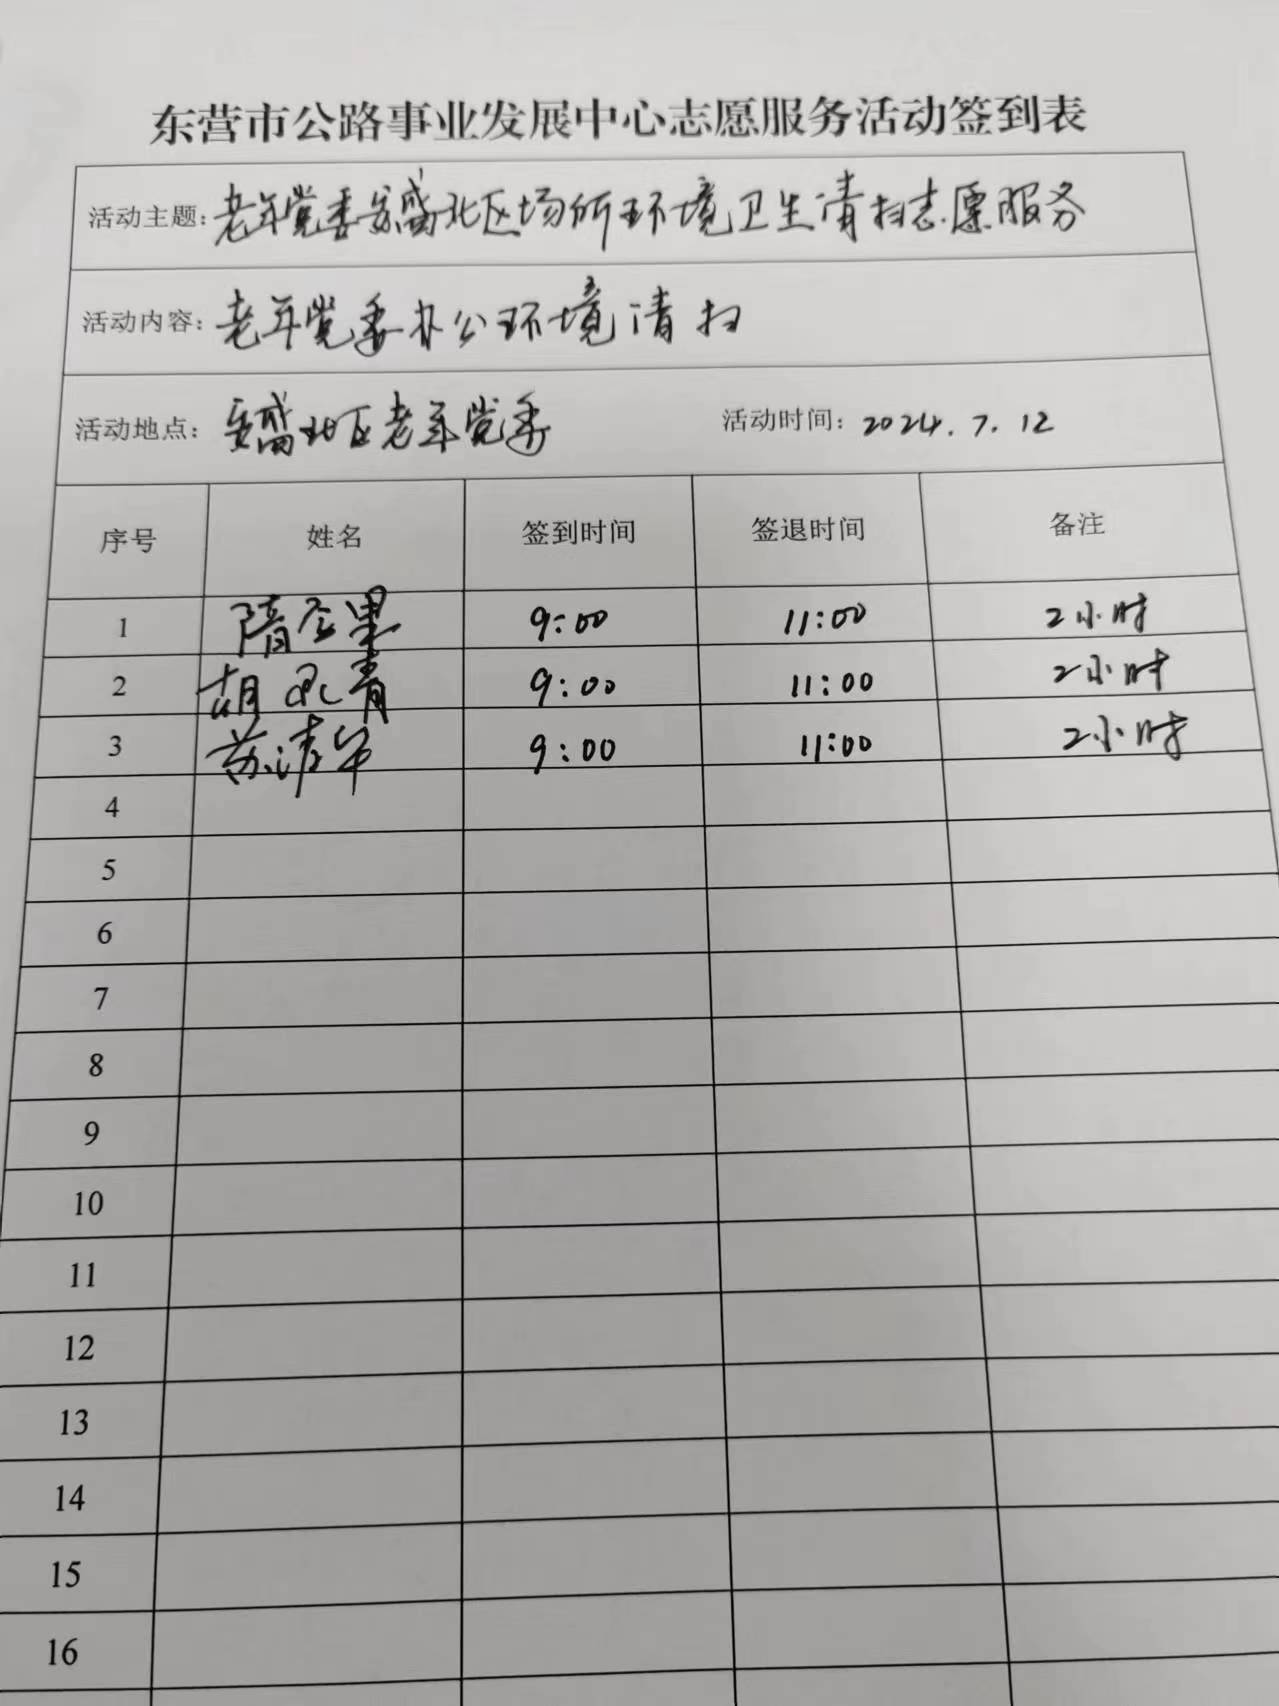 东营市公路事业发展中心志愿服务活动签到表
活动主题：老年党委安盛北区场所环境卫生清扫志愿服务
活动内容：老年党委办公环境清扫
活动地点：安盛北区老年党委 活动时间：2024.7.12
序号 姓名 签到时间 签退时间 备注
1 隋 9:00 11:00 2小时
2 胡 青 9:00 11:00 2小时
3 苏清华 9:00 11:00 2小时
4
5
6
7
8
9
10
11
12
13
14
15
16